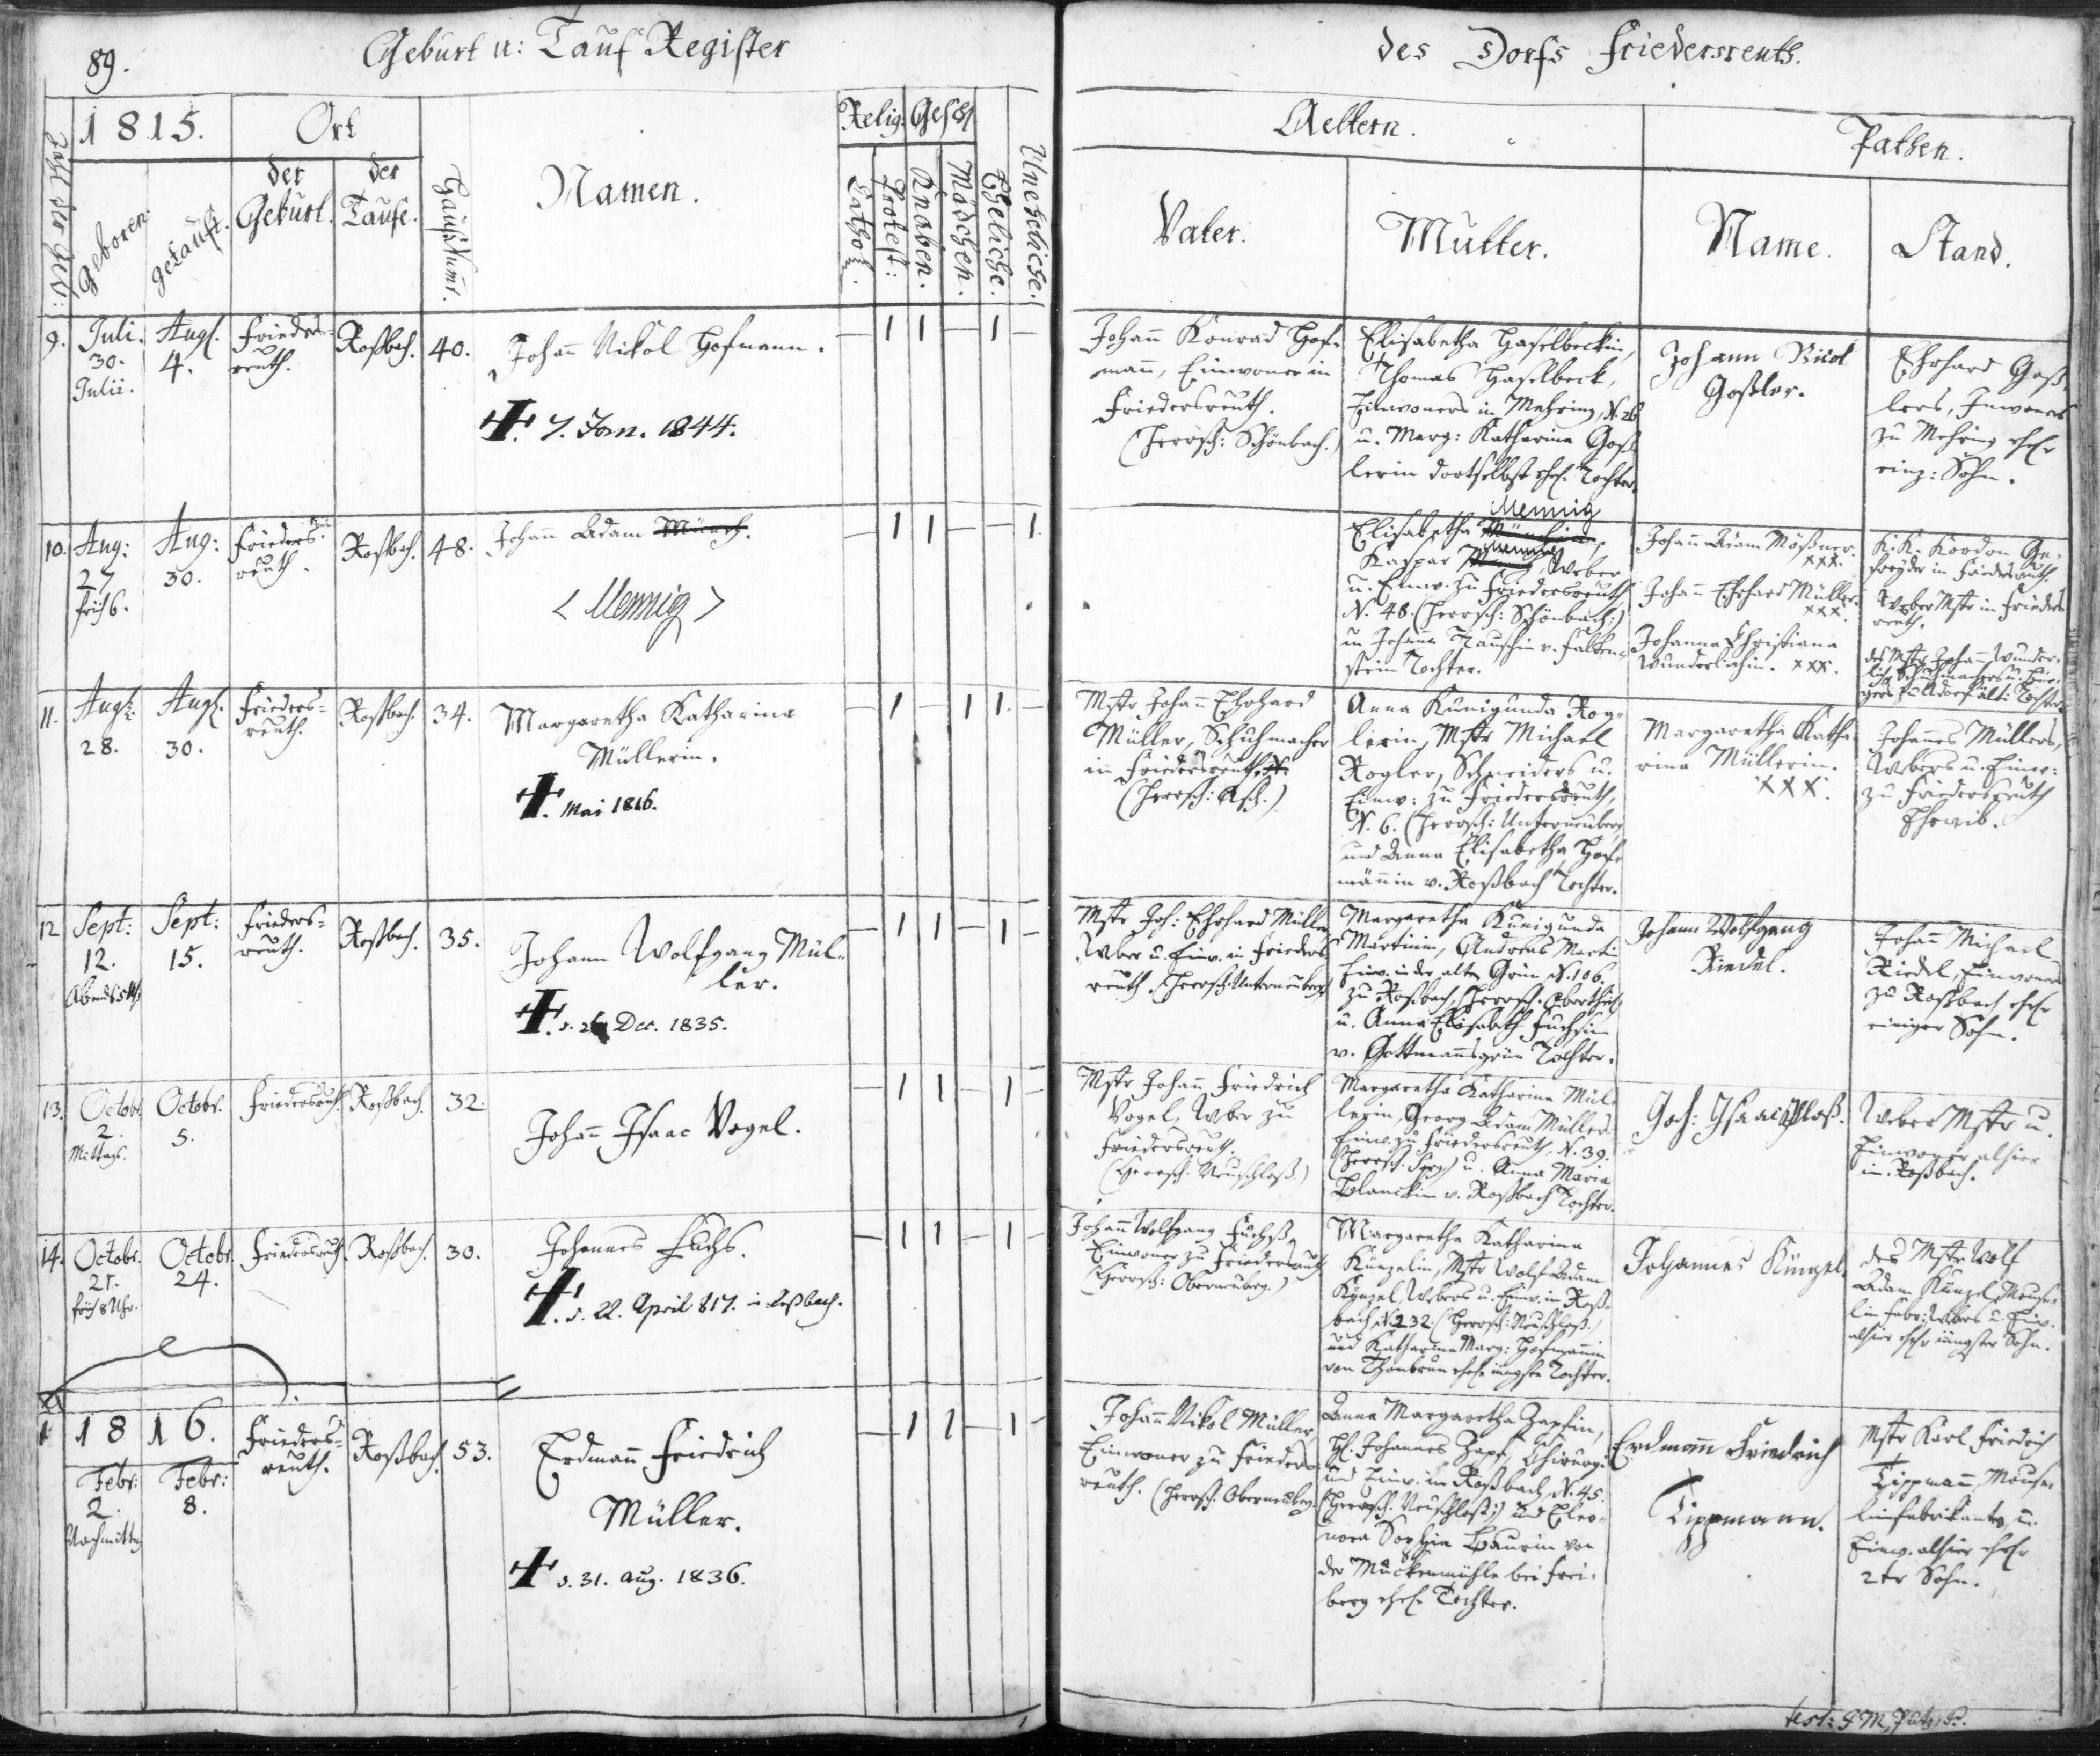 89.
Geburt u: Tauf Register
des Dorfs Friedersreuth.
1815.
Ort
Relig:
Geschl
Zahl der Geb:
Geboren.
getauft.
der Geburt.
der Taufe.
Hauß Numr.
Namen.
Kathol.
Protest:
Knaben.
Mädchen.
Eheliche.
Uneheliche.
Aeltern.
Pathen.
Vater.
Mutter.
Name.
Stand.
9.
Juli.
30.
Julii.
Augl.
4.
Frieders=
reuth.
Roßbach.
40.
Johann Nikol Hofmann.
7. Jan. 1844.
Johann Konrad Hof=
mann, Einwoner in
Friedersreuth.
(Herrsch: Schönbach.)
Elisabetha Haselbeckin,
Thomas Haselbeck,
Einwoners in Mehring, N. 26
u. Marg: Katharina Goß=
lerin dortselbst ehel. Tochter.
Johann Nicol
Goßler.
Ehrhard Goß=
lers, Inwoners
zu Mehring ehel
einz: Sohn.
10.
Aug:
27
früh 6.
Aug:
30.
Frieders=
reuth.
Roßbach.
48.
Johann Adam Münch.
< Mennig >
Mennig
Elisabetha
Kaspar Weber
u. Einw. zu Friedersreuth,
N. 48. (Herrsch: Schönbach.)
u. Johanna Rauschin v. Falken=
stein Tochter.
Johann Adam Mößner.
xxx.
Johann Ehrhard Müller.
xxx.
Johanna Christiana
Wunderlichin. xxx.
K. K. Kordon Ge=
freyder in Friedersreuth.
Weber Mstr in Frieders
reuth.
des Mstr Johann Wunder=
lich Schuhmachers u. Bür=
gers zu Adorf ält: Tochter.
11.
Augl.
28.
Augl.
30.
Frieders=
reuth.
Roßbach.
34.
Margaretha Katharina
Müllerin.
Mai 1816.
Mstr Johann Ehrhard
Müller, Schuhmacher
in Friedersreuth.
(Herrsch: Asch.)
Anna Kunigunda Rog=
lerin, Mstr Michael
Rogler, Schneiders u.
Einw: zu Friedersreuth,
N. 6. (Herrsch: Unterneuberg)
und Anna Elisabetha Hof=
männin v. Roßbach Tochter.
Margaretha Katha=
rina Müllerin.
xxx.
Johannes Müllers,
Webers u. Einw:
zu Friedersreuth
Eheweib.
12
Sept:
12.
Abends 5 Uhr
Sept:
15.
Frieders=
reuth.
Roßbach.
35.
Johann Wolfgang Mül=
ler.
d. 26 Dec. 1835.
Mstr Joh: Ehrhard Müller
Weber u. Einw. in Frieders
reuth. (Herrsch: Unterneuberg)
Margaretha Kunigunda
Martinin, Andreas Martin
Einw. in der alten Grün N. 106.
zu Roßbach,
u. Anna Elisabeth Fuchsin
v. Gottmannsgrün Tochter.
Johann Wolfgang
Riedel.
Johann Michael
Riedel, Einwoners
zu Roßbach ehel
einiger Sohn.
13.
Octobr.
2.
Mittags.
Octobr.
5.
Friedersreuth.
Roßbach.
32.
Johann Isaac Vogel.
Mstr Johann Friedrich
Vogel, Weber zu
Friedersreuth.
(Herrsch: Neuschloß.)
Margaretha Katharina Mül=
lerin, Georg Adam Müllers
Einw. zu Friedersreuth, N. 39.
(Herrsch: Sorg) u. Anna Maria
Blanckin v. Roßbach Tochter.
Joh: Isaac Ploß.
Weber Mstr u.
Einwoner alhier
in Roßbach.
14.
Octobr.
21.
früh 8 Uhr.
Octobr.
24.
Friedersreuth.
Roßbach.
30.
Johannes Fuchs.
d. 22. April 817. in Roßbach.
Johann Wolfgang Fuchß,
Einwoner zu Friedersreuth
(Herrsch: Oberneuberg.)
Margaretha Katharina
Künzelin, Mstr Wolf Adam
Künzel, Webers u. Einw. in Roß=
bach, N. 232. (Herrsch: Neuschloß.)
und Katharina Marg: Hofmannin
von Thonbrun ehel. jüngste Tochter.
Johannes Künzel.
des Mstr Wolf
Adam Künzel, Mouse=
lin fabr: Webers u. Einw.
alhier ehel jüngster Sohn.
1
1816.
Febr:
2.
Nachmittag
Febr:
8.
Frieders=
reuth.
Roßbach.
53.
Erdmann Friedrich
Müller.
d. 31. Aug. 1836.
Johann Nikol Müller
Einwoner zu Frieders
reuth. (Herrsch: Oberneuberg.
Anna Margaretha Zapfin,
Hl. Johannes Zapf, Chirurgi
und Einw. in Roßbach, N. 45.
(Herrsch. Neuschloß.) und Eleo=
nora Sophia Baurin von
der Muckenmühle bei Frei=
berg ehel. Tochter.
Erdmann Friedrich
Tippmann.
Mstr Karl Friedrich
Tippmann, Mouse=
linfabrikanten u.
Einw. alhier ehel
2ter Sohn.